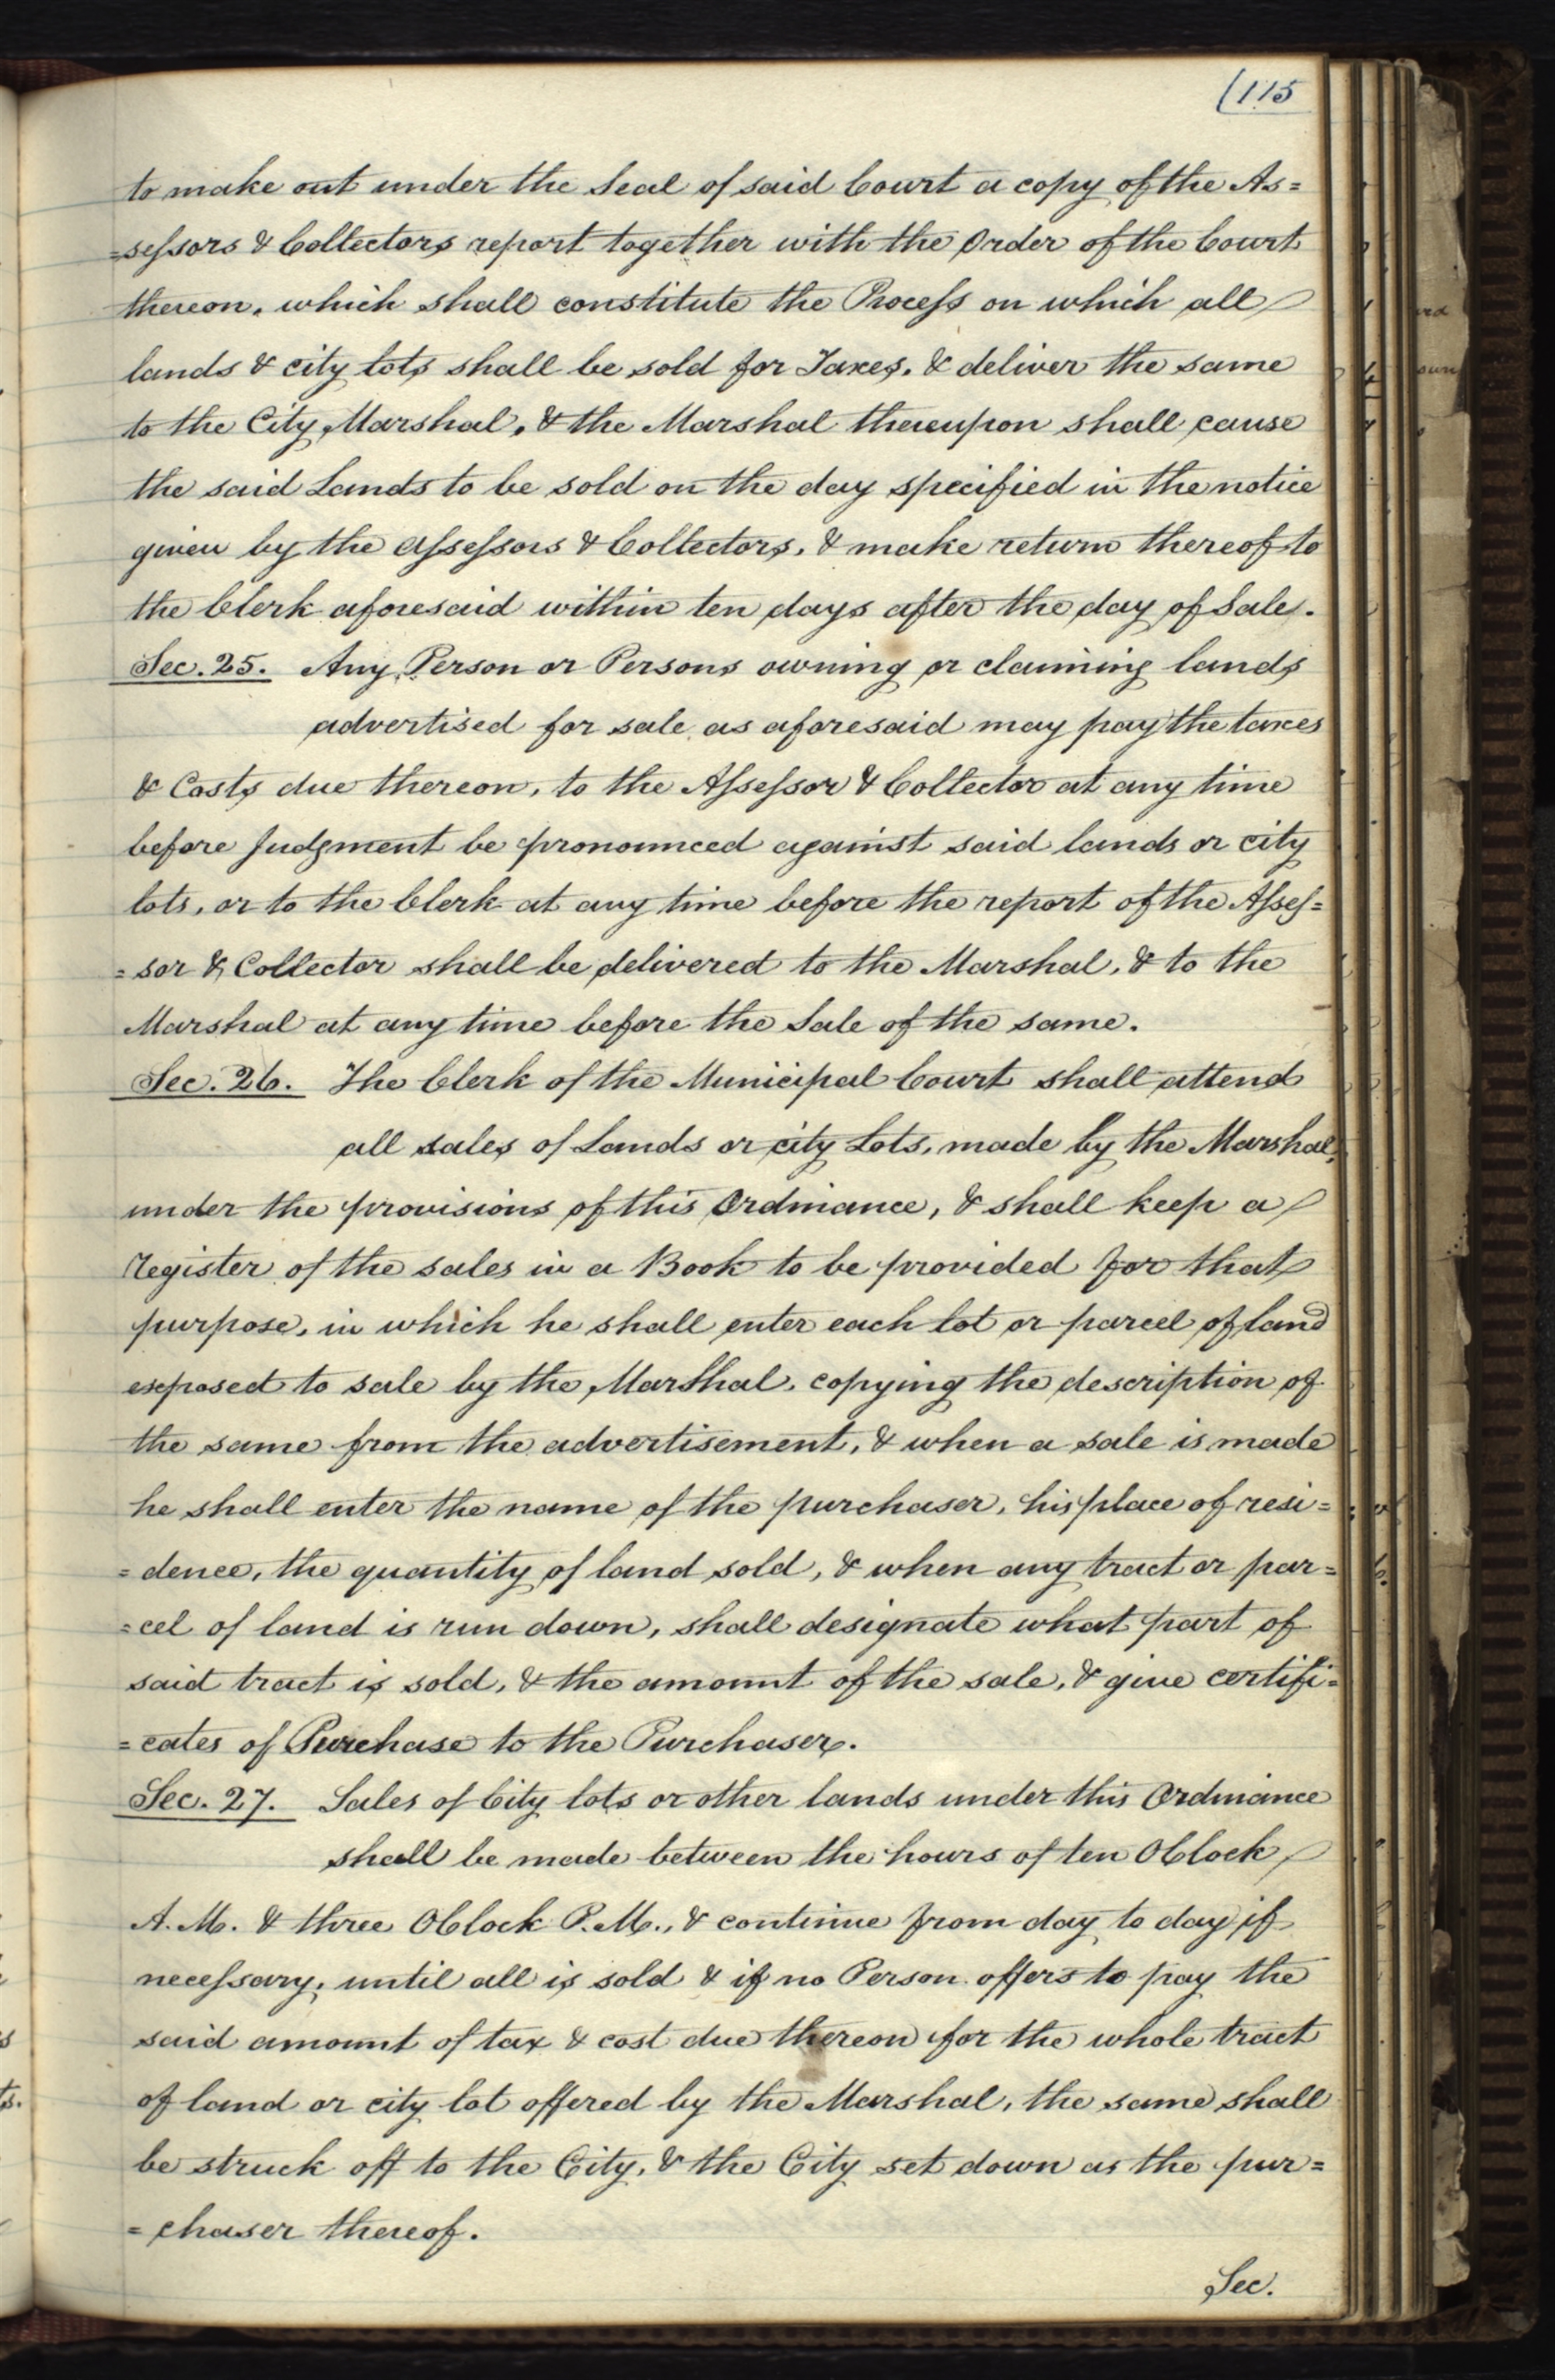 (115
to make out under the Seal of said Court a copy of the As=
=sessors & Collectors report together with the Order of the Court
thereon, which shall constitute the Process on which all
lands & city lots shall be sold for Taxes, & deliver the same
to the City Marshal, & the Marshal thereupon shall cause
the said Lands to be sold on the day specified in the notice
given by the Assessors & Collectors, & make return thereof to
the Clerk aforesaid within ten days after the day of Sale.
Sec. 25. Any Person or Persons owning or claiming lands
advertised for sale as aforesaid may pay the taxes
& Costs due thereon, to the Assessor & Collector at any time
before Judgment be pronounced against said lands or city
lots, or to the Clerk at any time before the report of the Asses=
=sor & Collector shall be delivered to the Marshal, & to the
Marshal at any time before the Sale of the same.
Sec. 26. The Clerk of the Municipal Court shall attend
all sales of Lands or city Lots, made by the Marshal,
under the provisions of this Ordinance, & shall keep a
Register of the sales in a Book to be provided for that
purpose, in which he shall enter each lot or parcel of land
exposed to sale by the Marshal, copying the description of
the same from the advertisement, & when a sale is made
he shall enter the name of the purchaser, his place of resi=
=dence, the quantity of land sold, & when any tract or par=
=cel of land is run down, shall designate what part of
said tract is sold, & the amount of the sale, & give certifi=
=cates of Purchase to the Purchaser.
Sec. 27. Sales of City lots or other lands under this Ordinance
shall be made between the hours of ten OClock
A.M. & three OClock P.M., & continue from day to day if
necessary, until all is sold & if no Person offers to pay the
said amount of tax & cost due thereon for the whole tract
of land or city lot offered by the Marshal, the same shall
be struck off to the City, & the City set down as the pur=
=chaser thereof.
Sec.